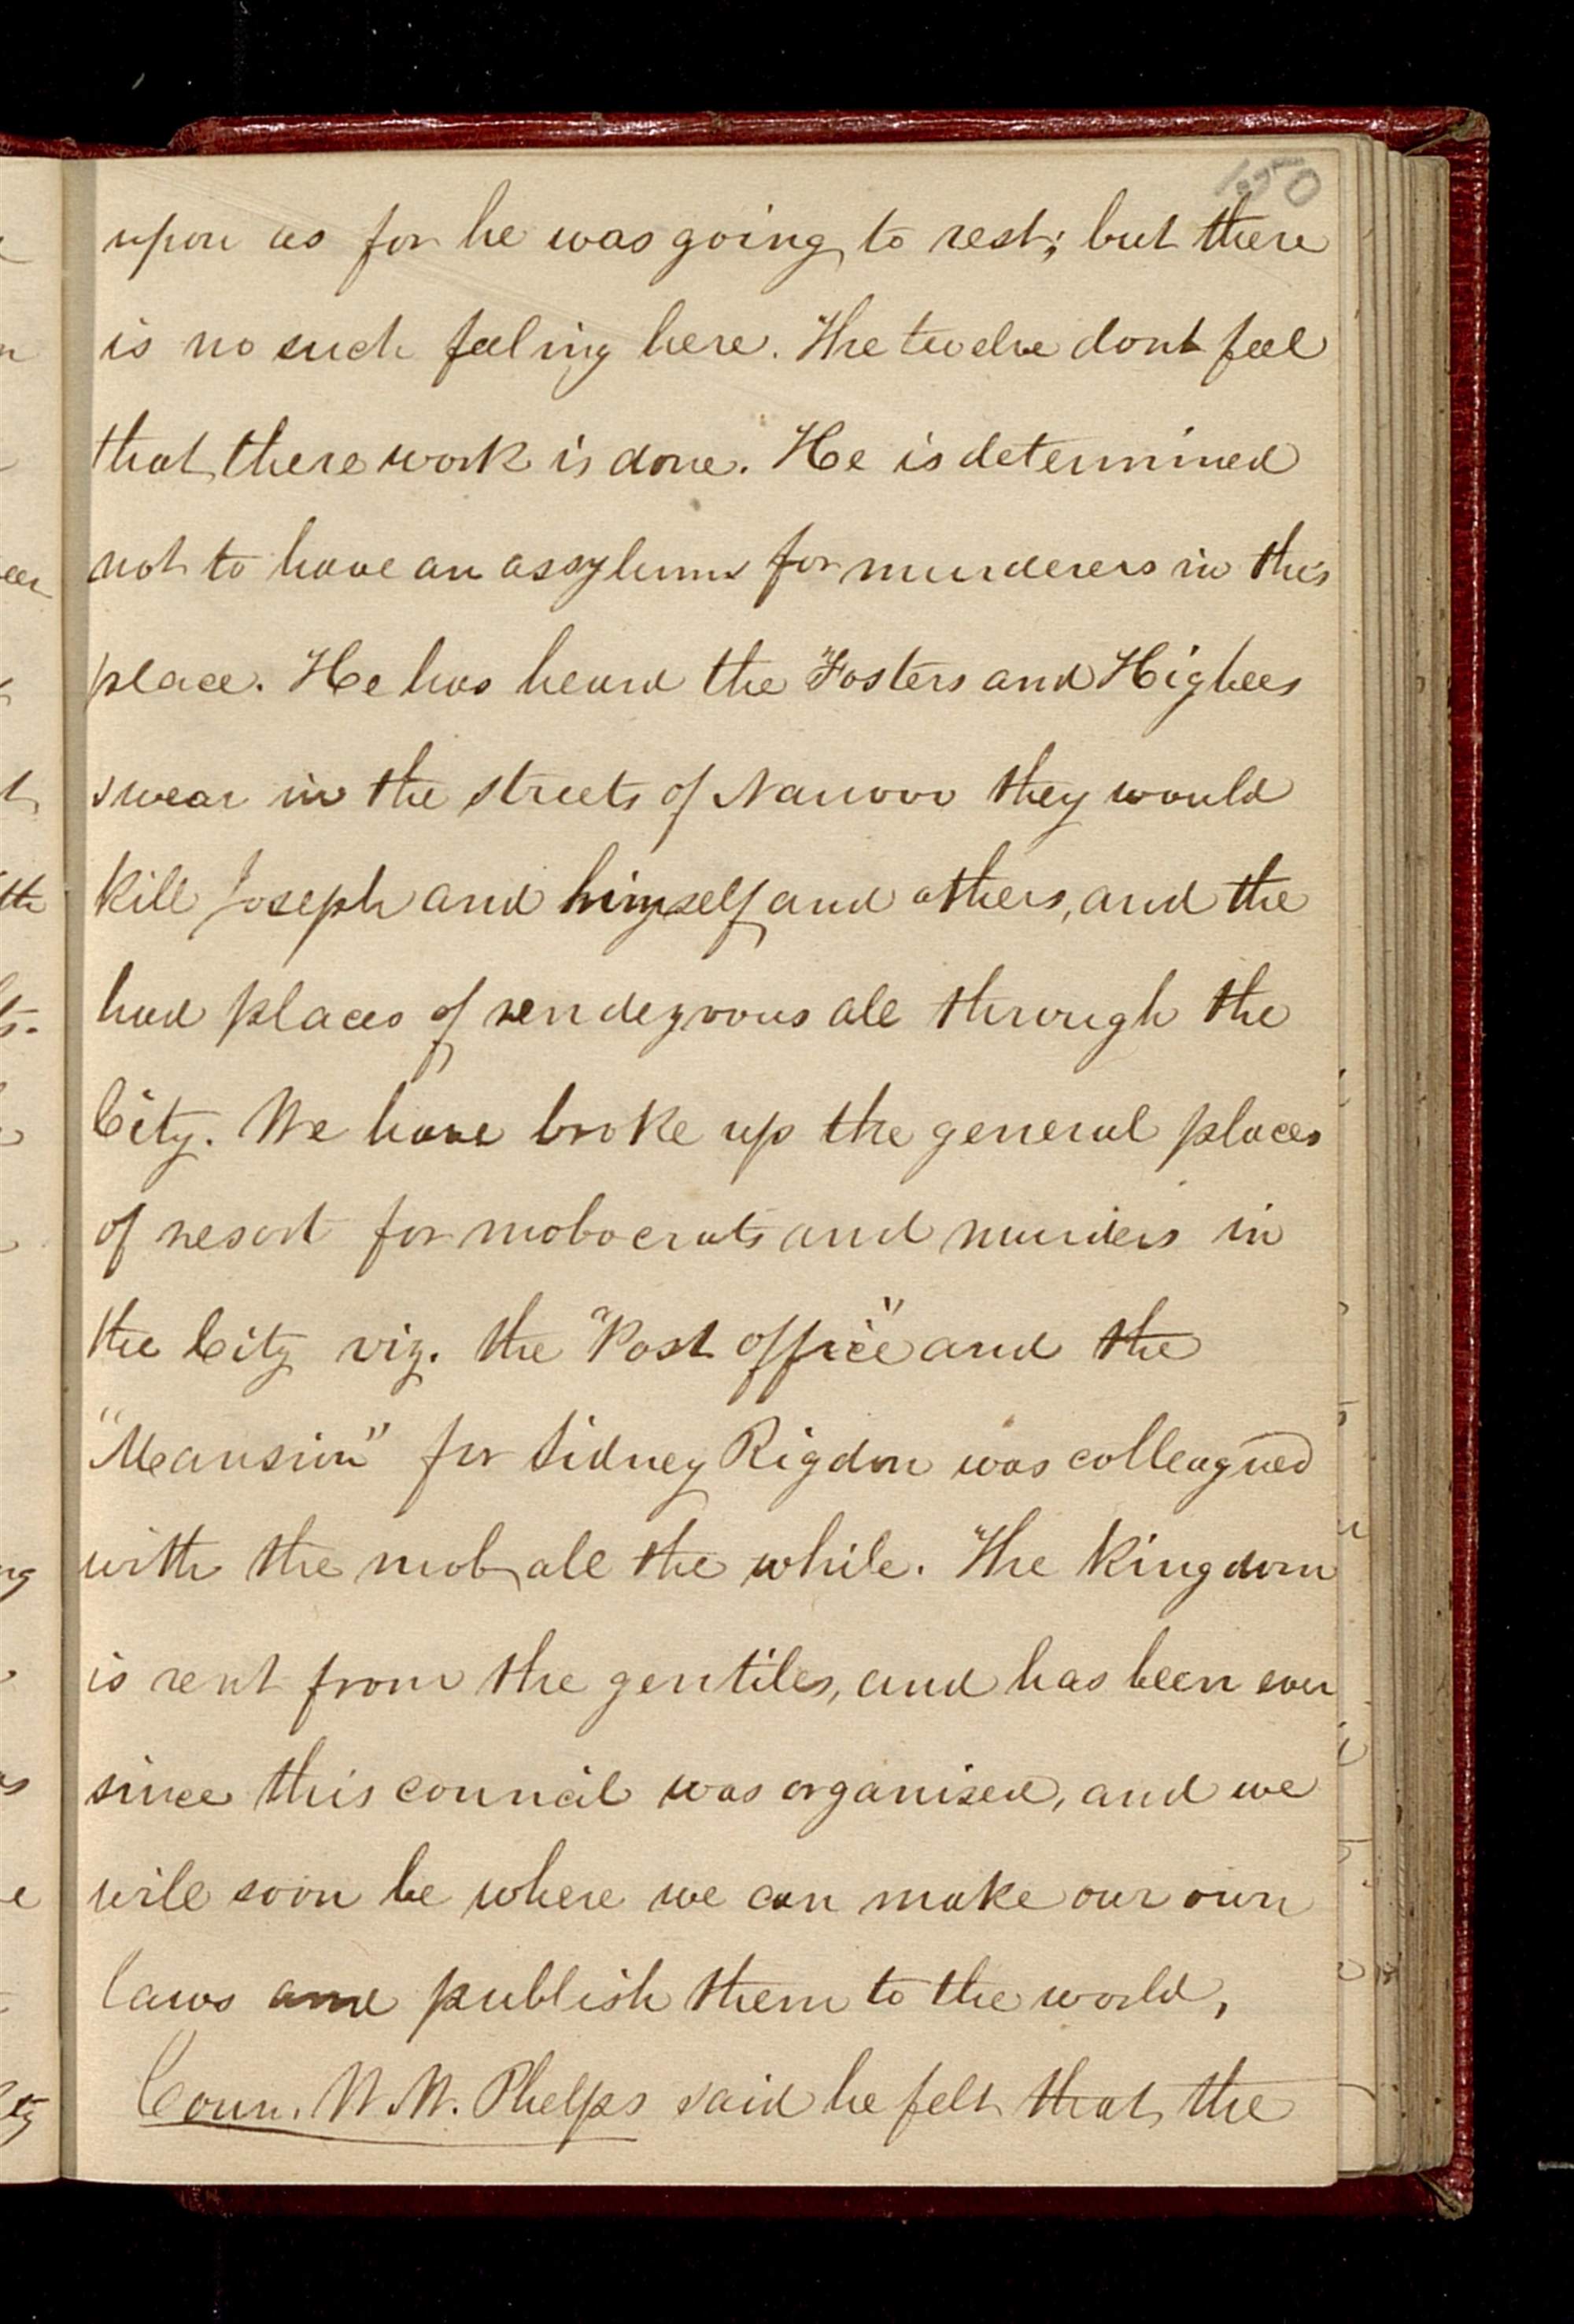 150
upon us for he was going to rest; but there
is no such feeling here. The twelve dont feel
that there work is done. He is determined
not to have an assylum for murderers in this
place. He has heard the Fosters and Higbees
swear in the streets of Nauvoo they would
kill Joseph and himself and others, and the
had places of rendezvous all through the
City. We have broke up the general places
of resort for mobocrats and murders in
the City viz. the "Post office" and the
"Mansion" for Sidney Rigdon was colleagued
with the mob all the while. The Kingdom
is rent from the gentiles, and has been ever
since this council was organised, and we
will soon be where we can make our own
laws and publish them to the world,
Coun. W. W. Phelps said he felt that the